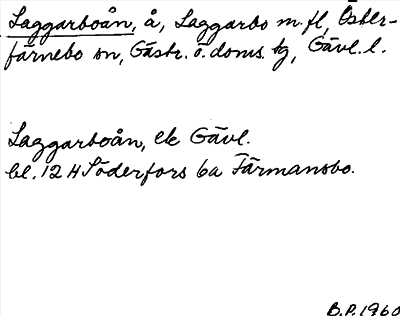 Laggarboån, å, Laggarbo m.fl, Öster-
färnebo sn, Gästr. ö. doms. tg, Gävl. l.
Laggarboån, ek Gävl.
bl. 12 H Söderfors ba Färmansbo.
B.P. 1960